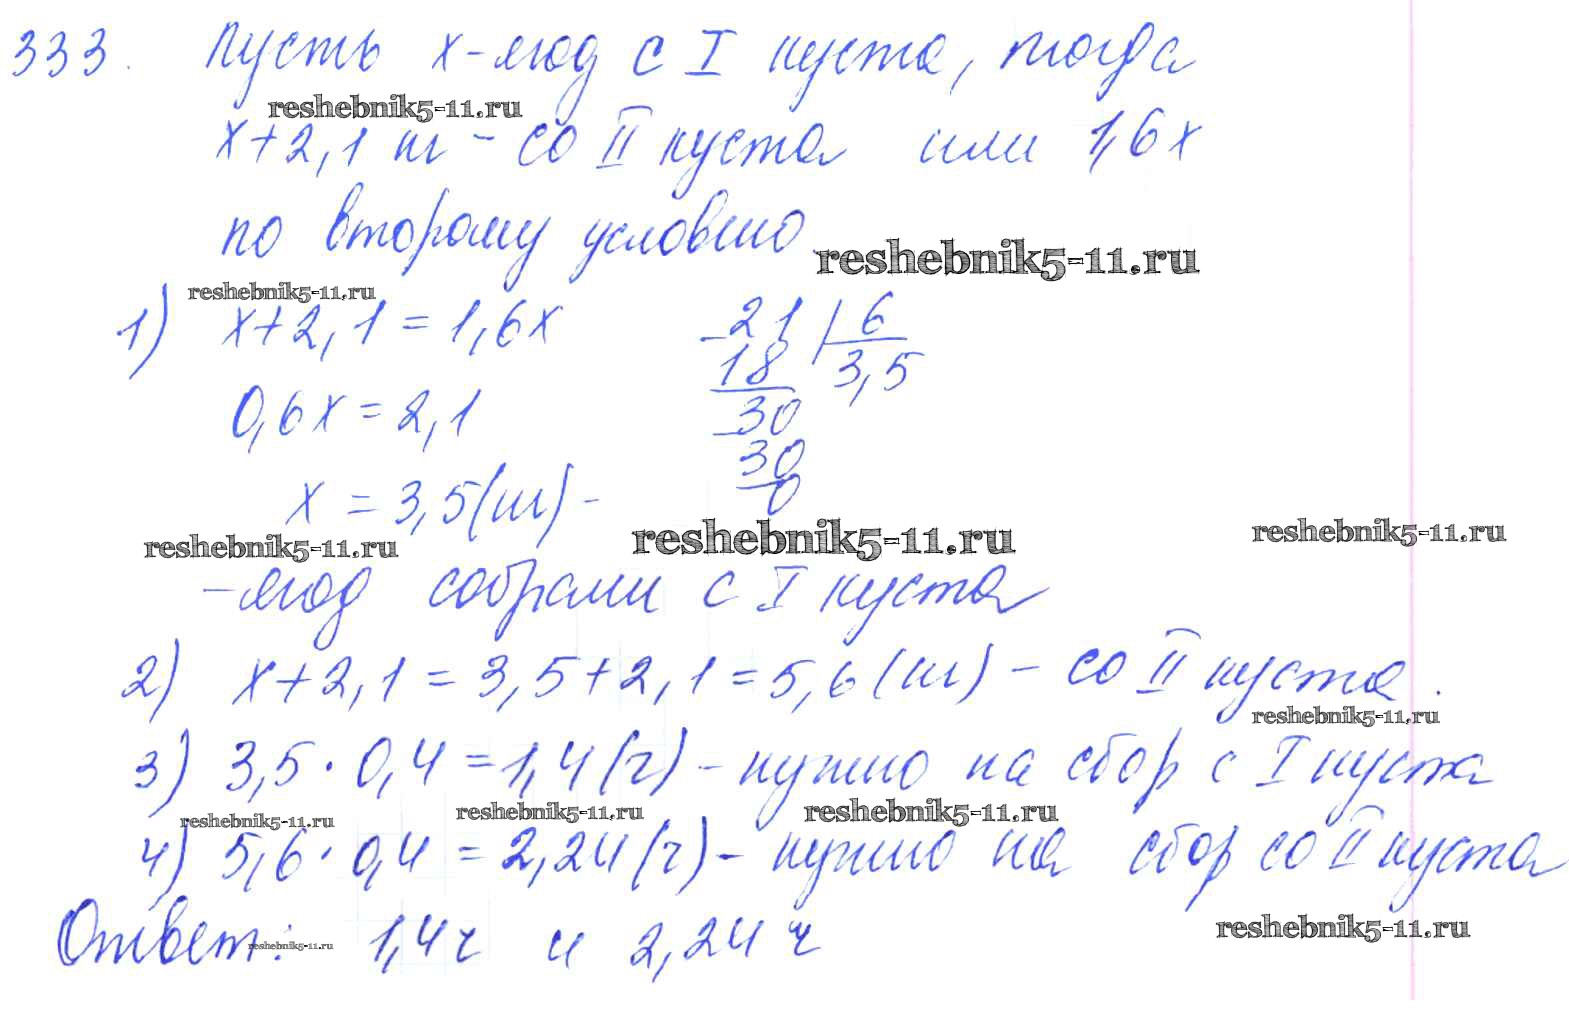 333. Пусть x - ягод с I куста, тогда
reshebnik5-11.ru
x+2,1 кг - со II куста или 1,6x
по второму условию
reshebnik5-11.ru
reshebnik5-11.ru
1) x+2,1=1,6x
21 6
18 3,5
0,6x=2,1
30
30
0
x = 3,5(кг) -
reshebnik5-11.ru reshebnik5-11.ru reshebnik5-11.ru
- ягод собрали с I куста
2) x+2,1=3,5+2,1=5,6(кг) - со II куста.
reshebnik5-11.ru
3) 3,5·0,4=1,4(ч) - нужно на сбор с I куста
reshebnik5-11.ru reshebnik5-11.ru reshebnik5-11.ru
4) 5,6·0,4=2,24(ч) - нужно на сбор со II куста
Ответ: 1,4ч и 2,24ч
reshebnik5-11.ru reshebnik5-11.ru